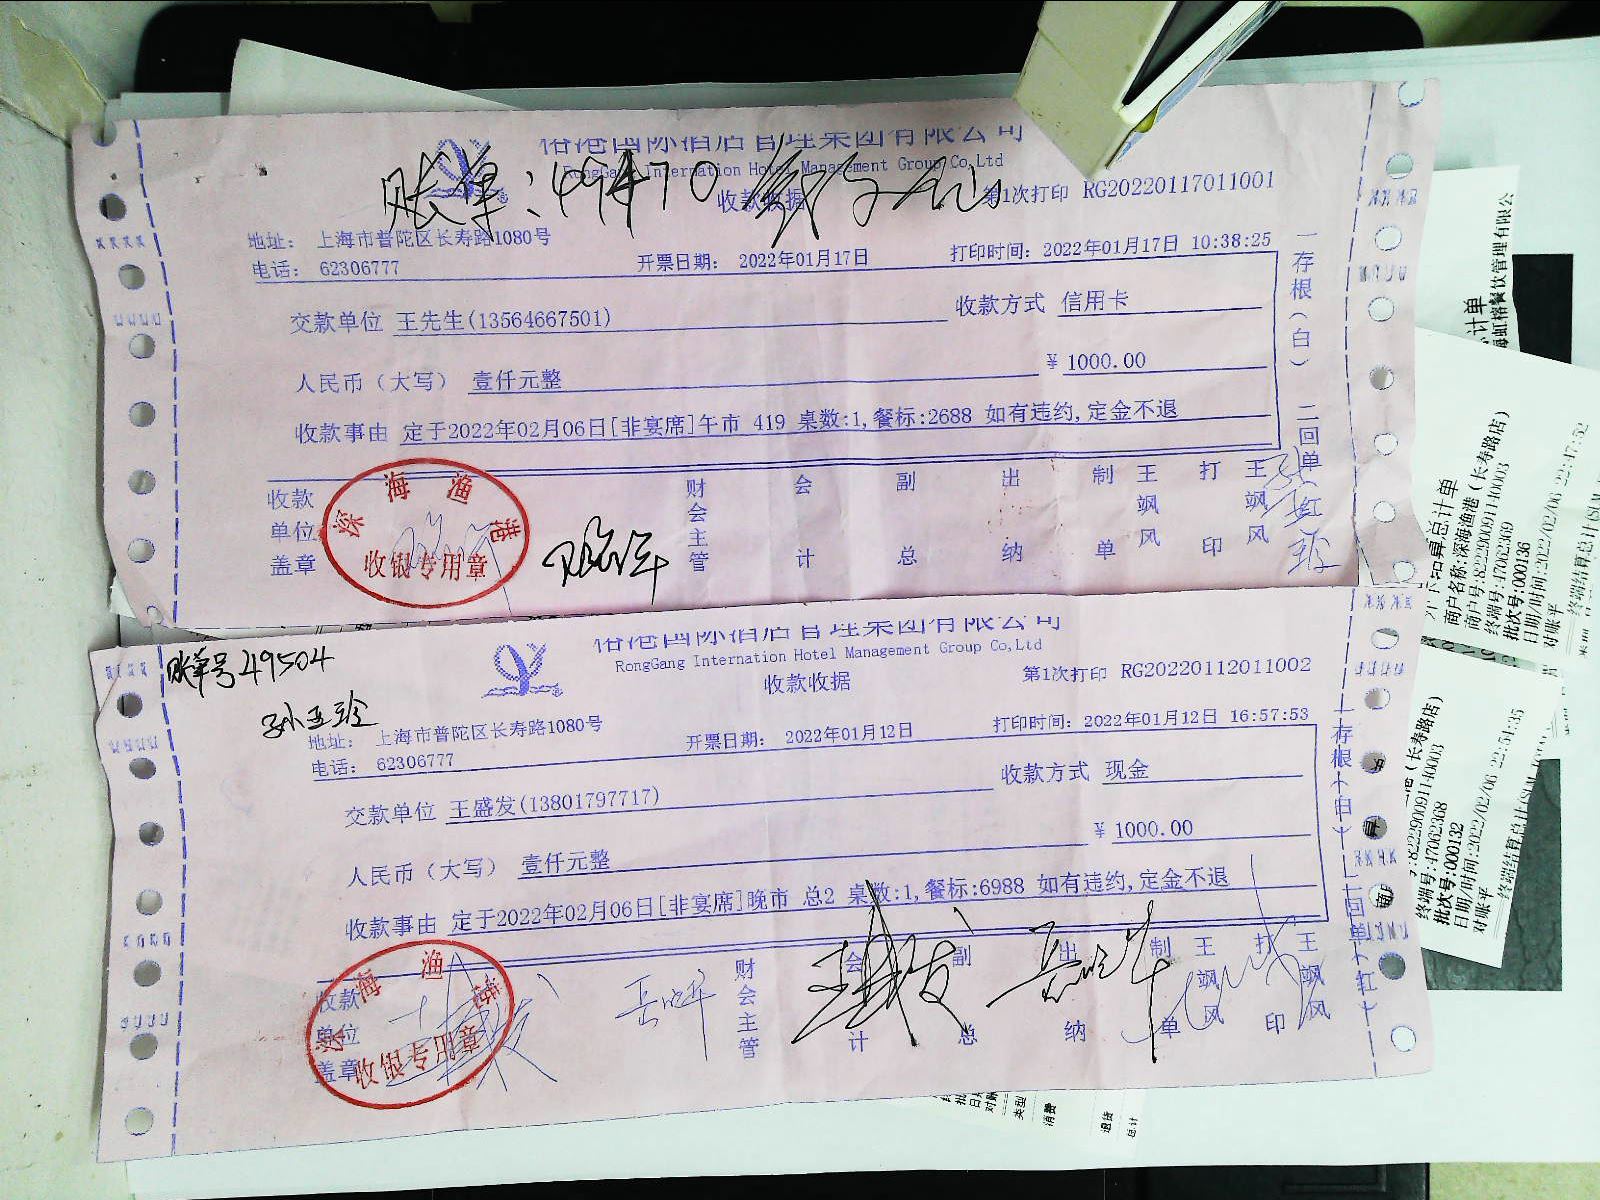 国际酒店管理集团有限公司
RongGang Internation Hotel Management Group Co,Ltd
账单:49470
收款收据
第1次打印 RG20220117011001
地址: 上海市普陀区长寿路1080号
电话: 62306777
开票日期: 2022年01月17日
打印时间: 2022年01月17日 10:38:25
交款单位 王先生(13564667501)
收款方式 信用卡
人民币(大写) 壹仟元整
¥ 1000.00
收款事由 定于2022年02月06日[非宴席]午市 419 桌数:1,餐标:2688 如有违约,定金不退
一存根(白) 二回单
收款单位盖章
深海渔港
收银专用章
财会主管
会计
副总
出纳
制单 王飒风
打印 王飒风
账单号49504
孙亚玲
国际酒店管理集团有限公司
RongGang Internation Hotel Management Group Co,Ltd
收款收据
第1次打印 RG20220112011002
地址: 上海市普陀区长寿路1080号
电话: 62306777
开票日期: 2022年01月12日
打印时间: 2022年01月12日 16:57:53
交款单位 王盛发(13801797717)
收款方式 现金
人民币(大写) 壹仟元整
¥ 1000.00
收款事由 定于2022年02月06日[非宴席]晚市 总2 桌数:1,餐标:6988 如有违约,定金不退
一存根(白) 二回单(红)
收款单位盖章
深海渔港
收银专用章
财会主管
会计
副总
出纳
制单 王飒风
打印 王飒风
总计单
商户名称:深海渔港(长寿路店)
终端号:47062369
批次号:000136
日期/时间:2022/02/06 22:47:52
对账平
终端结算总计
(长寿路店)
终端号:47062368
批次号:000132
日期/时间:2022/02/06 22:51:35
对账平
终端结算总计
类型
消费
退货
总计